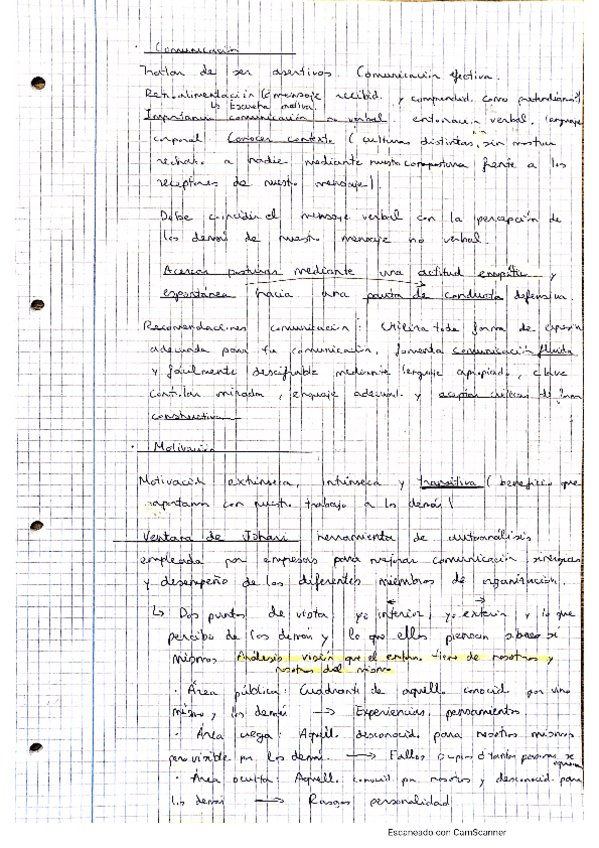 · Comunicación
Tratar de ser asertivos. Comunicación efectiva.
Retroalimentación (¿mensaje recibid. y comprendid. como pretendíamos?)
↳ Escucha activa.
Importancia comunicación no verbal: entonación verbal, lenguaje
corporal. Conocer contexto (culturas distintas, sin mostrar
rechazo a nadie mediante nuestra compostura frente a los
receptores de nuestro mensaje)
Debe coincidir el mensaje verbal con la percepción de
los demás de nuestro mensaje no verbal.
Acercar posturas mediante una actitud empática y
espontánea hacia una pauta de conducta defensiva.
Recomendaciones comunicación: Utiliza toda forma de
adecuada para tu comunicación, fomenta comunicación fluida
y fácilmente descifrable mediante lenguaje apropiado, clave
controlar mirada, lenguaje adecuad. y aceptar críticas de forma
constructiva
· Motivación
Motivación extrínseca, intrínseca y transitiva (beneficio que
aportamos con nuestro trabajo a los demás)
Ventana de Johari herramienta de autoanálisis
empleada por empresas para mejorar comunicación, sinergias
y desempeño de los diferentes miembros de organización.
↳ Dos puntos de vista: yo interior, yo exterior y lo que
percibo de los demás y lo que ellos piensan
mismos Análisis visión que el entorno tiene de nosotros y
nosotros del mismo
· Área pública: Cuadrante de aquello conocid. por uno
mismo y los demás → Experiencias, pensamientos
· Área ciega: Aquell. desconocid. para nosotros mismos
pero visible por los demás. → Fallos
· Área oculta: Aquell. conocid. por nosotros y desconocid. para
los demás → Rasgos personalidad
Escaneado con CamScanner